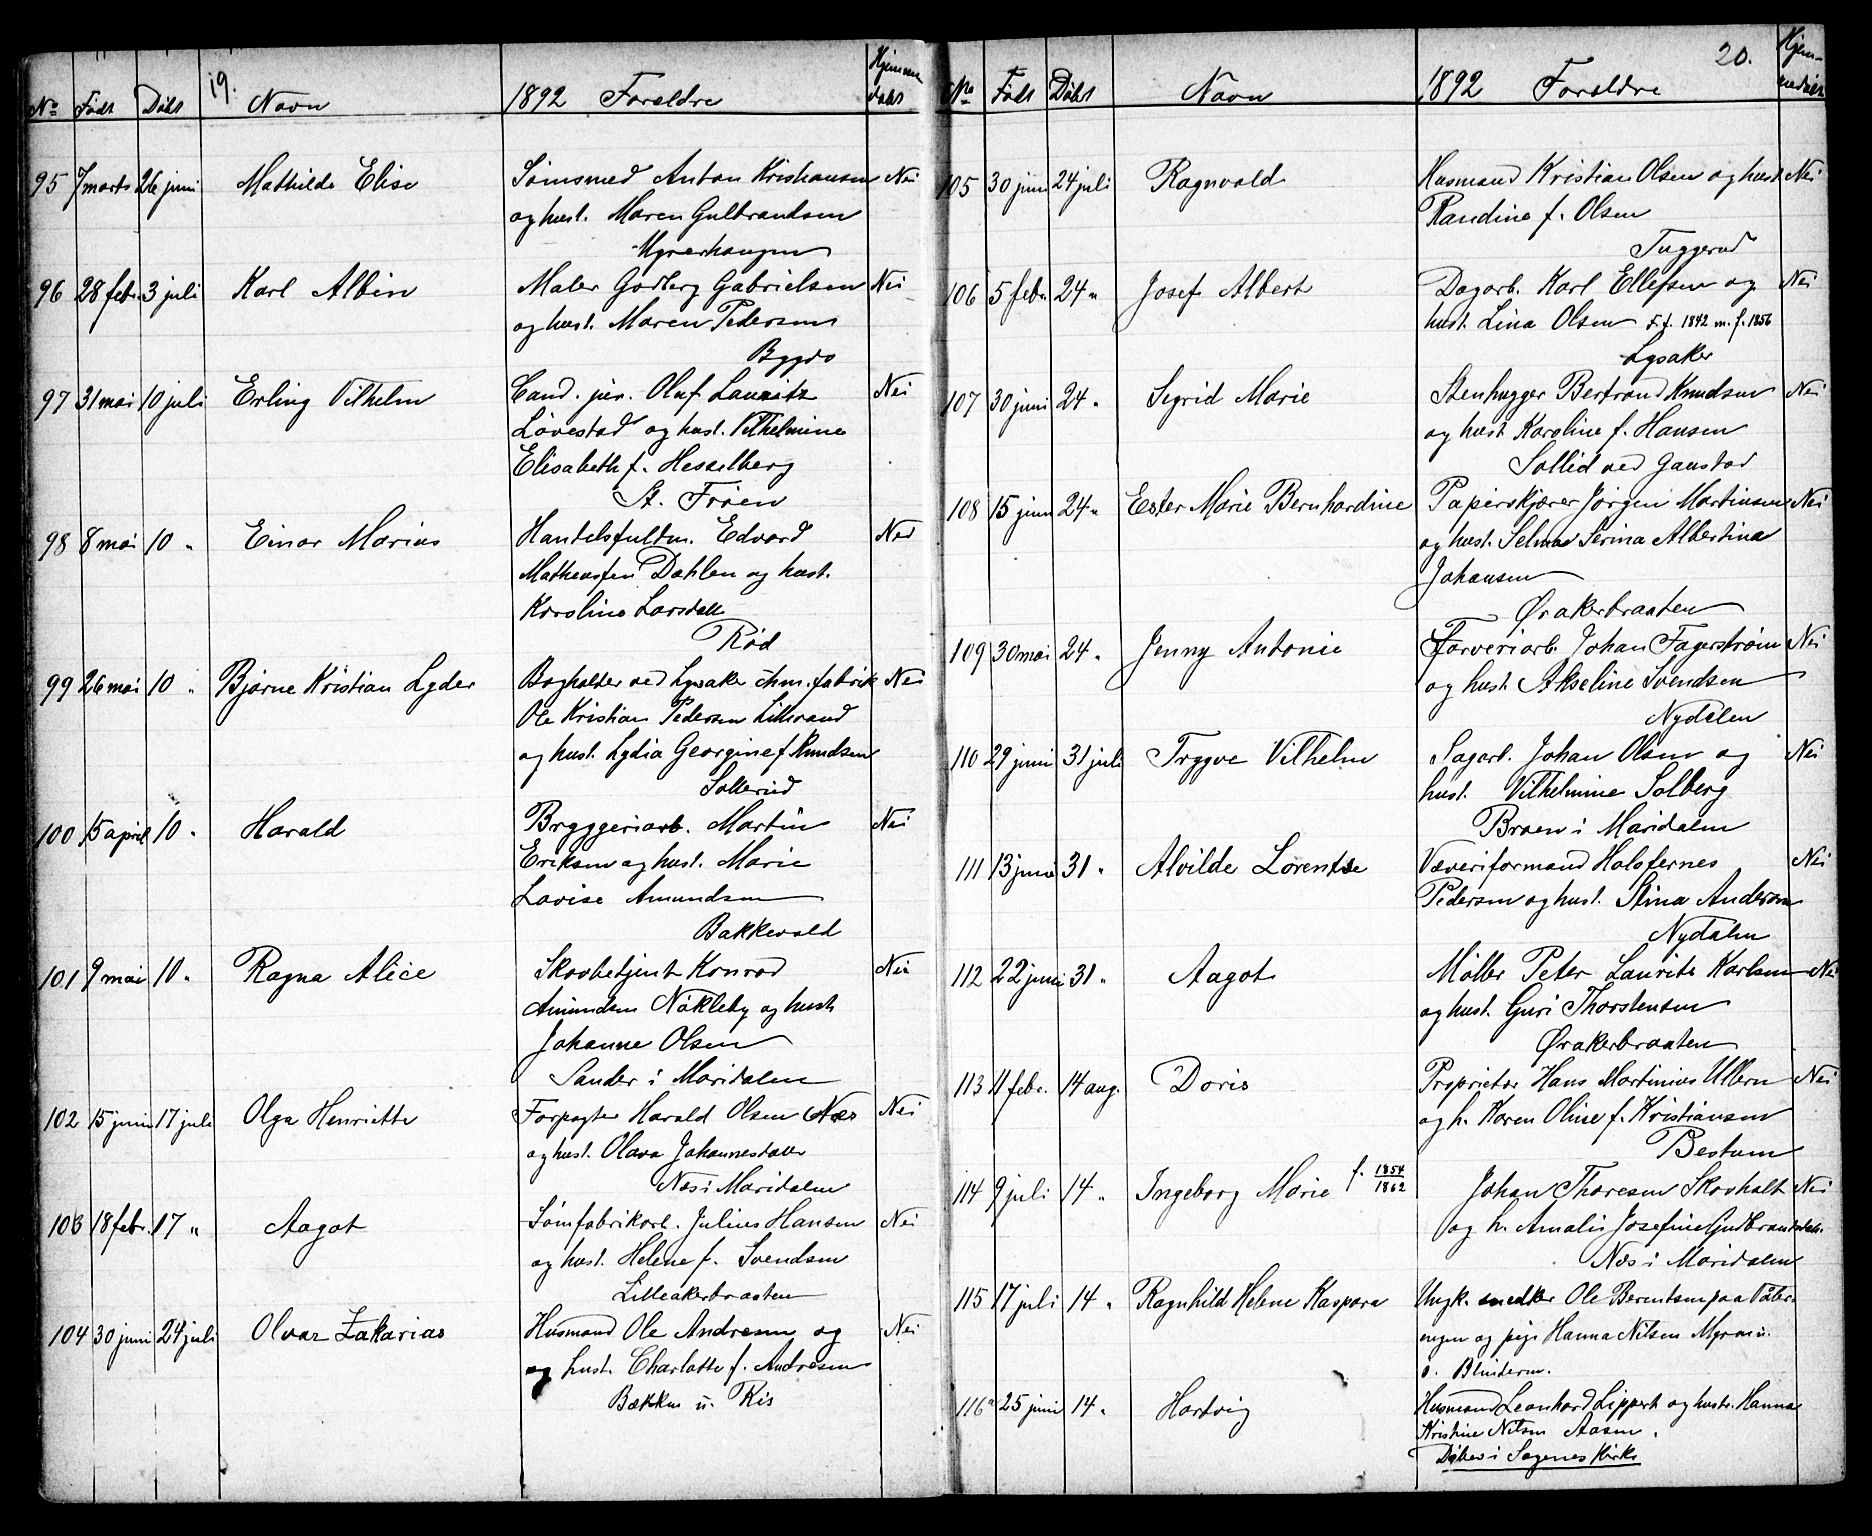 19.
No Født Døbt Navn 1892 Foreldre Hjemmedøbt
95 7 marts 26 juni Mathilde Elise Sømsmed Anton Kristiansen Nei
og hust. Maren Gulbrandsen
Myrerhaugen
96 28 febr. 3 juli Karl Albin Maler Godberg Gabrielsen Nei
og hust. Maren Pedersen
Bygdø
97 31 mai 10 juli Erling Vilhelm Cand. jur. Oluf Lauritz Nei
Løvestad og hust. Vilhelmine
Elisabeth f. Hesselberg
St. Frøen
98 8 mai 10 " Einar Marius Handelsfuldm. Edvard Nei
Matheussen Dahlen og hust.
Karoline Larsdatt
Rød
99 26 mai 10 " Bjarne Kristian Lyder Bogholder ved Lysaker chm. fabrik Nei
Ole Kristian Pedersen Lillerand
og hust. Lydia Georgine f. Knudsen
Sollerud
100 15 april 10 " Harald Bryggeriarb. Martin Nei
Eriksen og hust. Marie
Lovise Amundsen
Bakkevold
101 9 mai 10 " Ragna Alice Skovbetjent Konrad Nei
Amundsen Nökleby og hust
Johanne Olsen
Sander i Maridalen
102 15 juni 17 juli Olga Henriette Forpagter Harald Olsen Næs Nei
og hust. Olava Johannesdatter
Næs i Maridalen
103 18 febr. 17 " Aagot Sømfabrikarb. Julius Hansen Nei
og hust. Helene f. Svendsen
Lilleakerbraaten
104 30 juni 24 juli Olvar Zakarias Husmand Ole Andresen og Nei
og hust. Charlotte f. Andresen
Bækken u. Ris
20.
No Født Døbt Navn 1892 Foreldre Hjemmedøbt
105 30 juni 24 juli Ragnvald Husmand Kristian Olsen og hust Nei
Randine f. Olsen
Tuggerud
106 5 febr. 24 " Josef Albert Dagarb. Karl Ellefsen og Nei
hust. Lina Olsen F. f. 1842 m. f. 1856
Lysaker
107 30 juni 24 " Sigrid Marie Stenhugger Bertrand Knudsen Nei
og hust Karoline f. Hansen
Sollid ved Gaustad
108 15 juni 24 " Ester Marie Bernhardine Papirskjærer Jørgen Martinsen Nei
og hust. Selma Serina Albertina
Johansen
Ørakerbraaten
109 30 mai 24 " Jenny Antonie Farveriarb. Johan Fagerstrøm Nei
og hust. Akseline Svendsen
Nydalen
110 29 juni 31 juli Trygve Vilhelm Sagarb. Johan Olsen og Nei
hust. Vilhelmine Solberg
Braen i Maridalen
111 13 juni 31 " Alvilde Lorentse Væveriformand Holofernes Nei
Pedersen og hust. Stina Andersen
Nydalen
112 22 juni 31 " Aagot Møller Peter Laurits Karlsen Nei
og hust. Guri Thorstensen
Ørakerbraaten
113 11 febr. 14 aug. Doris Proprietær Hans Martinius Ullern Nei
og h. Karen Oline f. Kristiansen
Bestum
114 9 juli 14 " Ingeborg Marie f. 1854 1862 Johan Thoresen Skovholt Nei
og h. Amalie Josefine Gudbrandsdatt.
Næs i Maridalen
115 17 juli 14 " Ragnhild Helene Kaspara Ungk. snedker Ole Berntsen paa Vater-
ingen og pige Hanna Nilsen Myren u.
ö. Blindern.
116 25 juni 14 " Hartvig Husmand Leonhard Lippert og hustr. Hanna
Kristine Nilsen Aasen.
Døbes i Sagenes Kirke